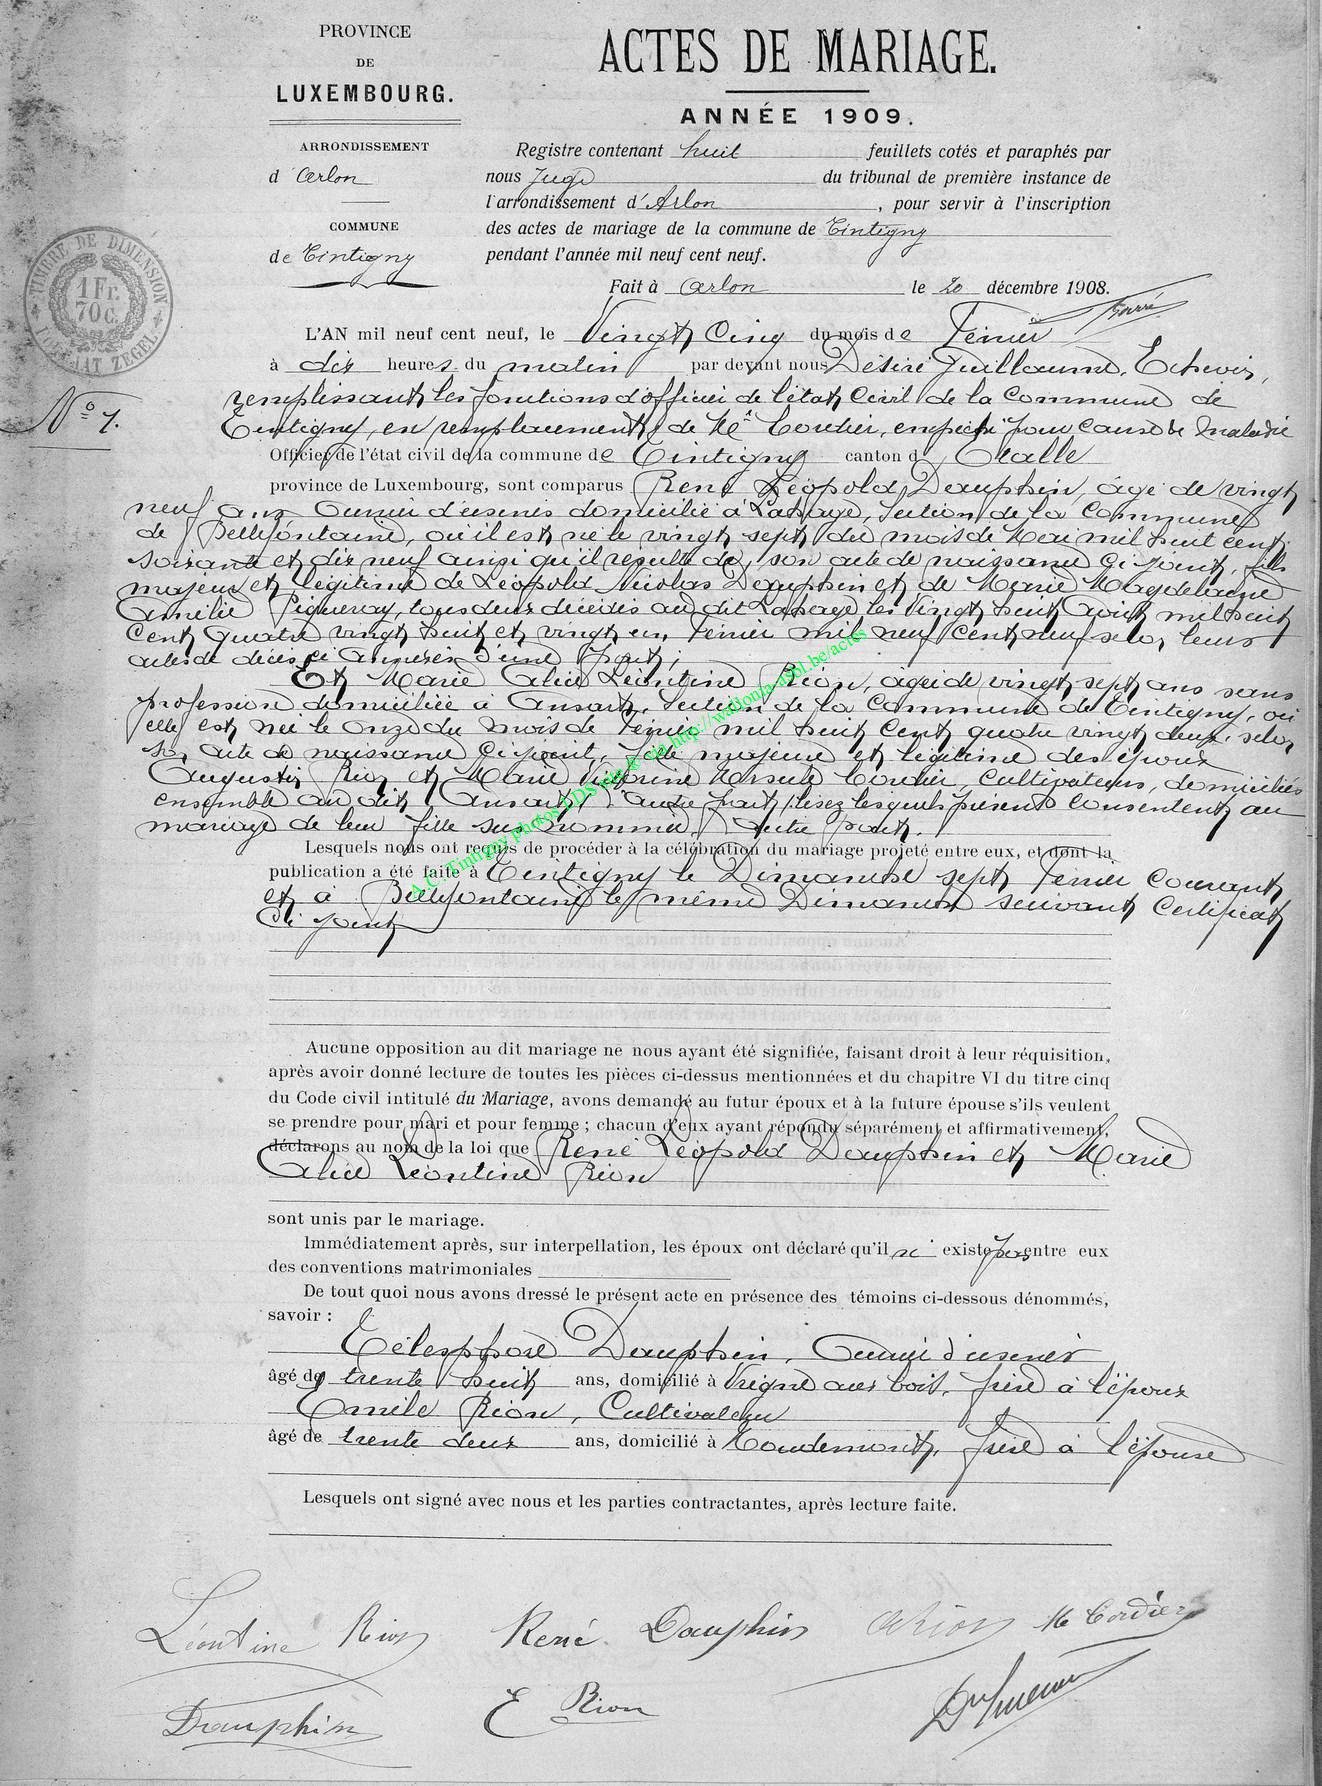 PROVINCE
DE
LUXEMBOURG.
ACTES DE MARIAGE.
ANNÉE 1909.
ARRONDISSEMENT
d'Arlon
COMMUNE
de Tintigny
Registre contenant huit feuillets cotés et paraphés par
nous Juge du tribunal de première instance de
l'arrondissement d'Arlon, pour servir à l'inscription
des actes de mariage de la commune de Tintigny
pendant l'année mil neuf cent neuf.
Fait à Arlon le 20 décembre 1908.
TIMBRE DE DIMENSION
1 Fr.
70 C.
FORMAAT ZEGEL
L'AN mil neuf cent neuf, le Vingt Cinq du mois de Février
à dix heures du matin par devant nous Désiré Guillaume, Echevin,
N° 7.
remplissant les fonctions d'officier de l'état civil de la Commune de
Tintigny, en remplacement de Mr Cordier, empêché pour cause de maladie
Officier de l'état civil de la commune de Tintigny canton d'Etalle
province de Luxembourg, sont comparus René Léopold Dauphin, âgé de vingt
neuf ans Ouvrier d'usines domicilié à Lahage, Section de la Commune
de Bellefontaine, où il est né le vingt sept du mois de Mai mil huit cent
soixante et dix neuf ainsi qu'il résulte de son acte de naissance ci joint, fils
majeur et légitime de Léopold Nicolas Dauphin et de Marie Magdelaine
Amélie Pignenay, tous deux décédés au dit Lahage les Vingt huit Août mil huit
Cent quatre vingt huit et vingt un Février mil neuf cent neuf selon leurs
actes de décès ci annexés d'une part;
Et Marie Alice Léontine Rion, âgée de vingt sept ans sans
profession domiciliée à Ansart, Section de la Commune de Tintigny, où
elle est née le onze du mois de Février mil huit Cent quatre vingt deux, selon
son acte de naissance ci joint, fille majeure et légitime des époux
Augustin Rion et Marie Victorine Ursule Cordier, Cultivateurs, domiciliés
ensemble au dit Ansart, d'autre part, lisez lesquels présents consentent au
mariage de leur fille sus nommée, d'autre part.
Lesquels nous ont requis de procéder à la célébration du mariage projeté entre eux, et dont la
publication a été faite à Tintigny le Dimanche sept Février courant
et à Bellefontaine le même Dimanche suivant Certificat
Ci joint
Aucune opposition au dit mariage ne nous ayant été signifiée, faisant droit à leur réquisition,
après avoir donné lecture de toutes les pièces ci-dessus mentionnées et du chapitre VI du titre cinq
du Code civil intitulé du Mariage, avons demandé au futur époux et à la future épouse s'ils veulent
se prendre pour mari et pour femme ; chacun d'eux ayant répondu séparément et affirmativement,
déclarons au nom de la loi que René Léopold Dauphin et Marie
Alice Léontine Rion
sont unis par le mariage.
Immédiatement après, sur interpellation, les époux ont déclaré qu'il n' existe pas entre eux
des conventions matrimoniales
De tout quoi nous avons dressé le présent acte en présence des témoins ci-dessous dénommés,
savoir :
Télesphore Dauphin, Ouvrier d'usines
âgé de trente huit ans, domicilié à Vrigne aux bois, frère à l'époux
Emile Rion, Cultivateur
âgé de trente deux ans, domicilié à Houdemont, frère à l'épouse
Lesquels ont signé avec nous et les parties contractantes, après lecture faite.
Léontine Rion René Dauphin A Rion M Cordier
Dauphin E Rion
A.C. Tintigny photos DDS site & via http://wallonia-asbl.be/actes